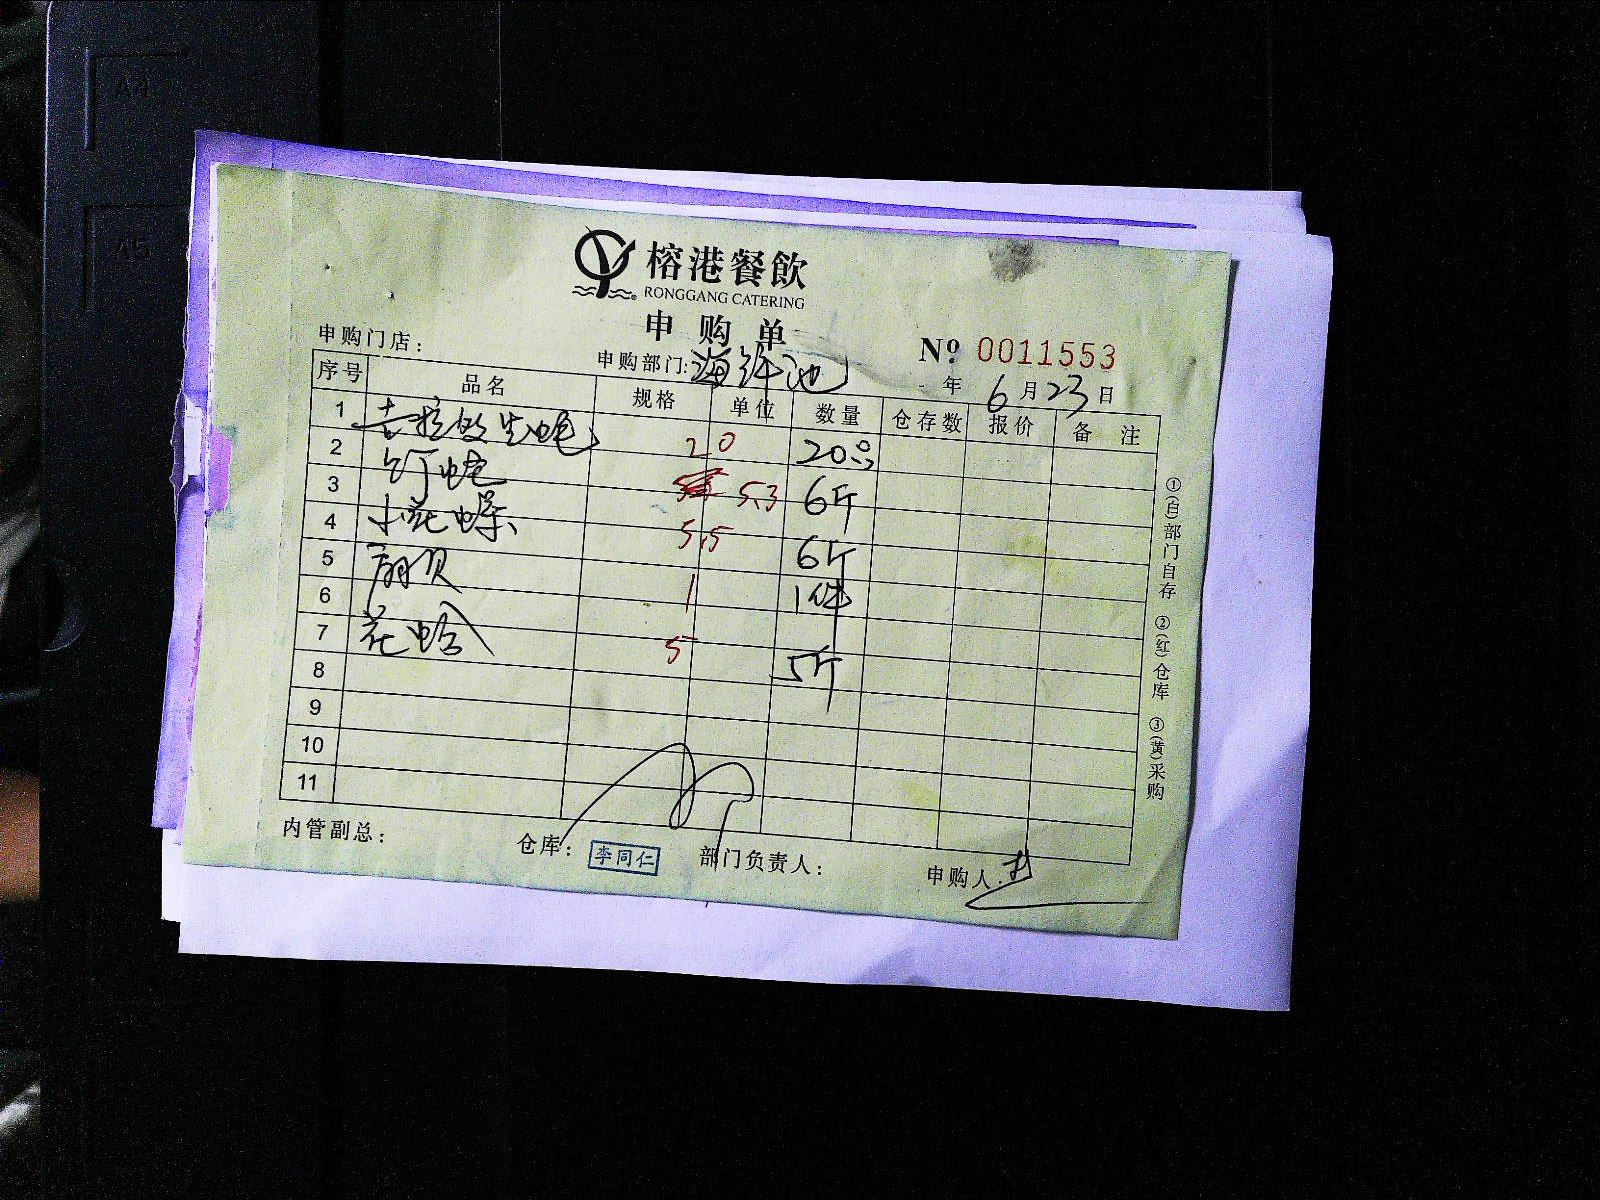 A4
A5
榕港餐飲
RONGGANG CATERING
申购单
申购门店：
申购部门：海鲜池
№ 0011553
年 6 月 23 日
序号 品名 规格 单位 数量 仓存数 报价 备注
1 吉拉多生蚝 20 20只
2
3 5.3 6斤
4 小花螺 5.5 6斤
5 扇贝 1 1件
6
7 花蛤 5 5斤
8
9
10
11
①(白)部门自存 ②(红)仓库 ③(黄)采购
内管副总： 仓库： 李同仁 部门负责人： 申购人：